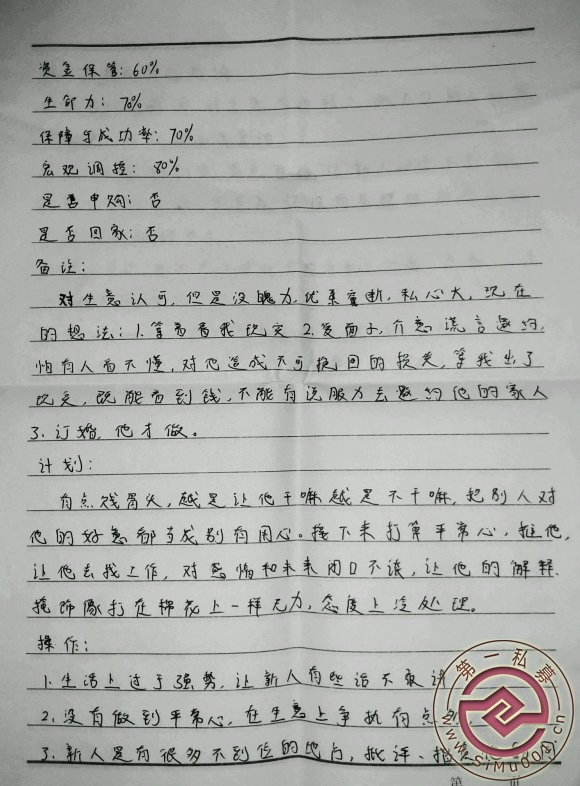 资金保管：60%
生命力：70%
保障与成功率：70%
宏观调控：80%
是否申购：否
是否回家：否
备注：
对生意认可，但是没魄力，优柔寡断，私心大，现在
的想法：1.等着看我玩完 2.爱面子，介意谎言邀约，
怕有人看不懂，对他造成不可挽回的损失，等我出了
玩完，既能看到钱，不能有说服力去邀约他的家人
3.订婚，他才做。
计划：
有点贱骨头，越是让他干嘛越是不干嘛，把别人对
他的好意都当成别有用心。接下来打算平常心，推他，
让他去找工作，对感情和未来闭口不谈，让他的解释、
掩饰像打在棉花上一样无力，态度上冷处理。
操作：
1.生活上过于强势，让新人有些话不敢讲
2.没有做到平常心，在生意上争执有点
3.新人是有很多不到位的地方，批评、指
第 页
第一私募
www.simu001.cn